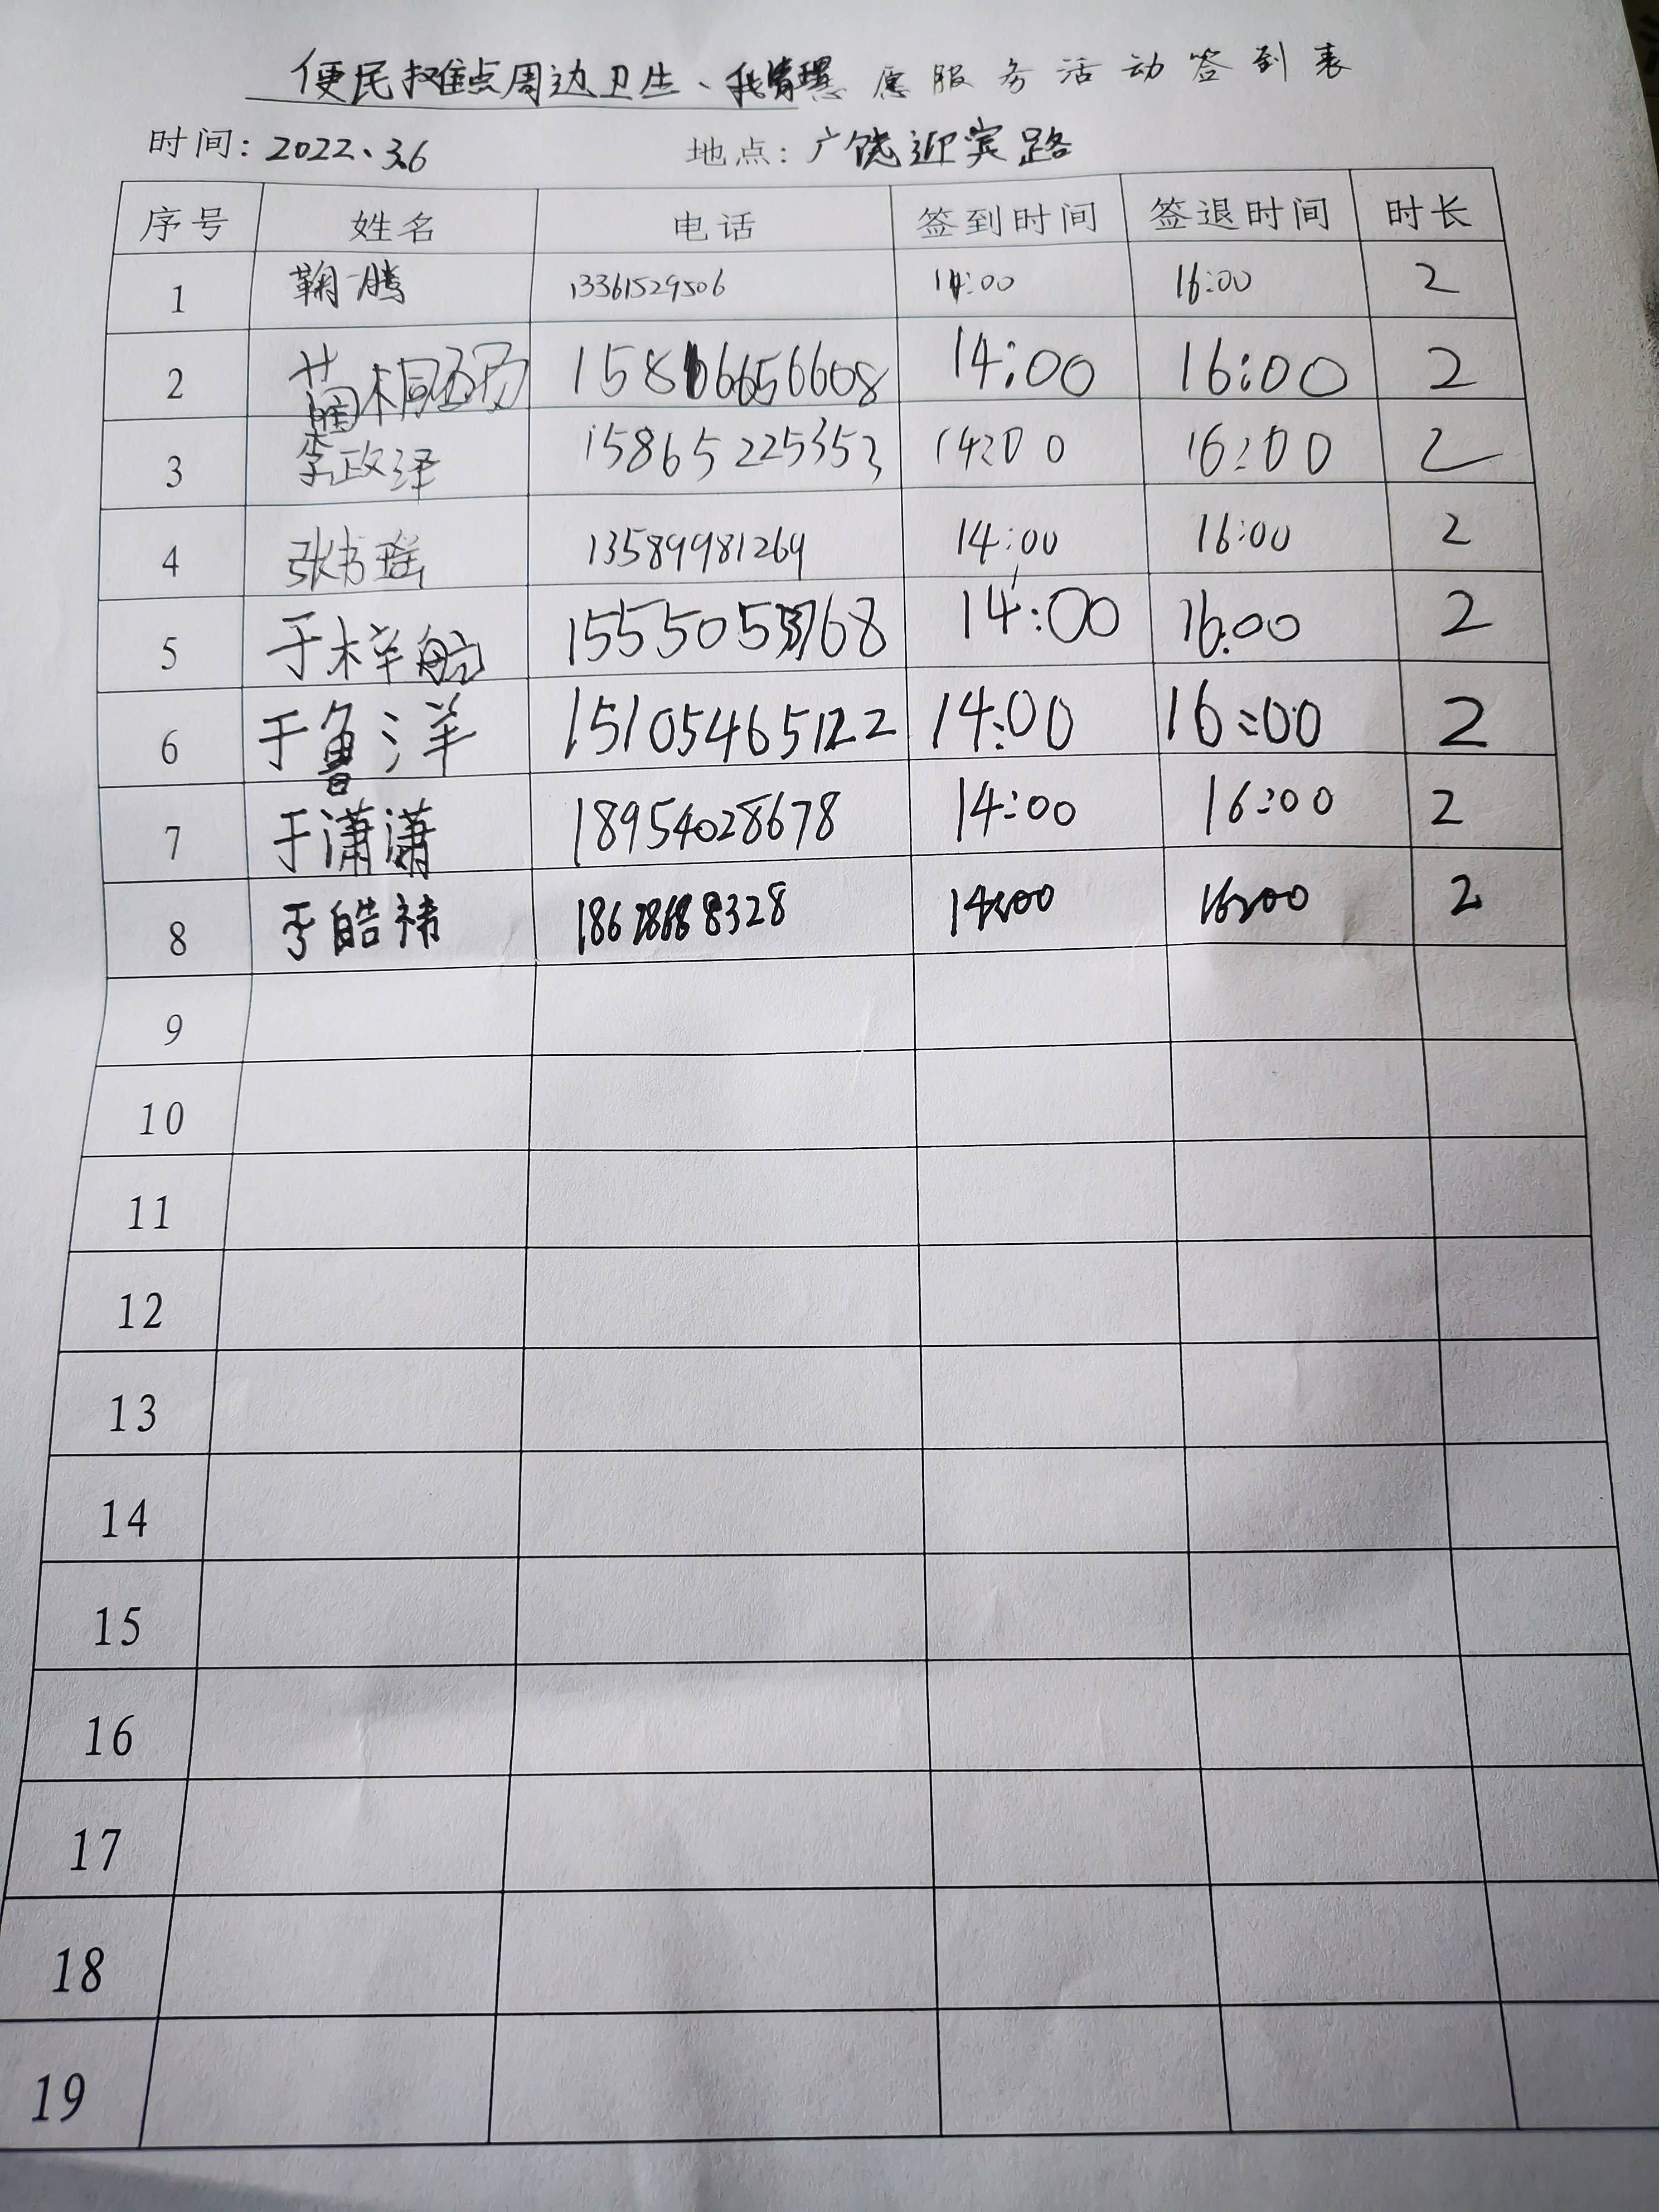 便民摊点周边卫生、我清理志愿服务活动签到表
时间：2022.3.6 地点：广饶迎宾路
序号 姓名 电话 签到时间 签退时间 时长
1 鞠腾 13361529506 14:00 16:00 2
2 苗桐 14:00 16:00 2
3 李政泽 15865225353 14:00 16:00 2
4 张书瑶 13589981269 14:00 16:00 2
5 于梓航 14:00 16:00 2
6 于鲁洋 15105465122 14:00 16:00 2
7 于潇潇 18954028678 14:00 16:00 2
8 于皓祎 14:00 16:00 2
9
10
11
12
13
14
15
16
17
18
19